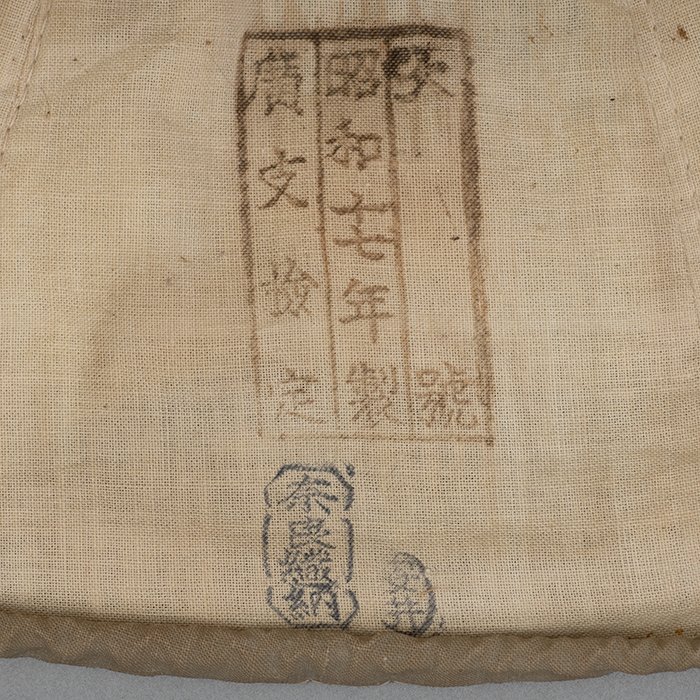 大號
昭和十七年製
廣支檢定
奈良纎納